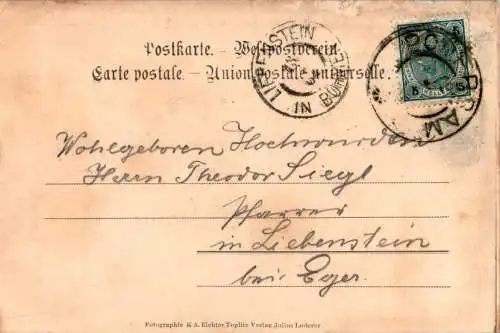 Postkarte. - Weltpostverein.
Carte postale. - Union postale universelle.
LIEBENSTEIN
IN BÖHMEN
5 5
AM
Wohlgeboren Hochwürden
Herrn Theodor Siegl
Pfarrer
in Liebenstein
bei Eger.
Fotographie K A. Richter Teplitz Verlag Julius Lederer